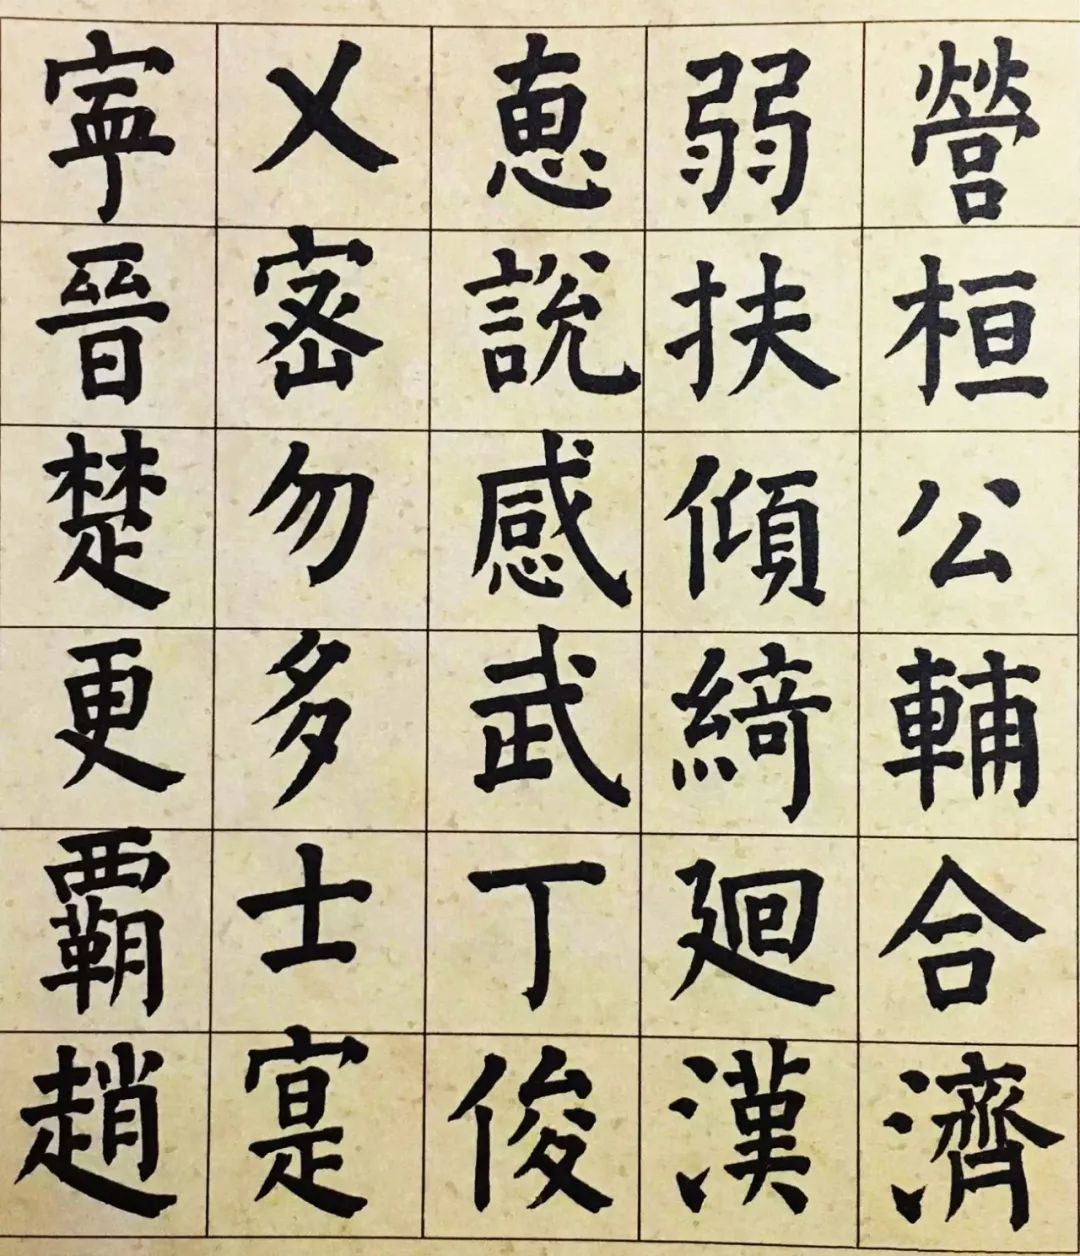 營桓公輔合濟
弱扶傾綺廻漢
恵說感武丁俊
乂密勿多士寔
寧晉楚更覇趙